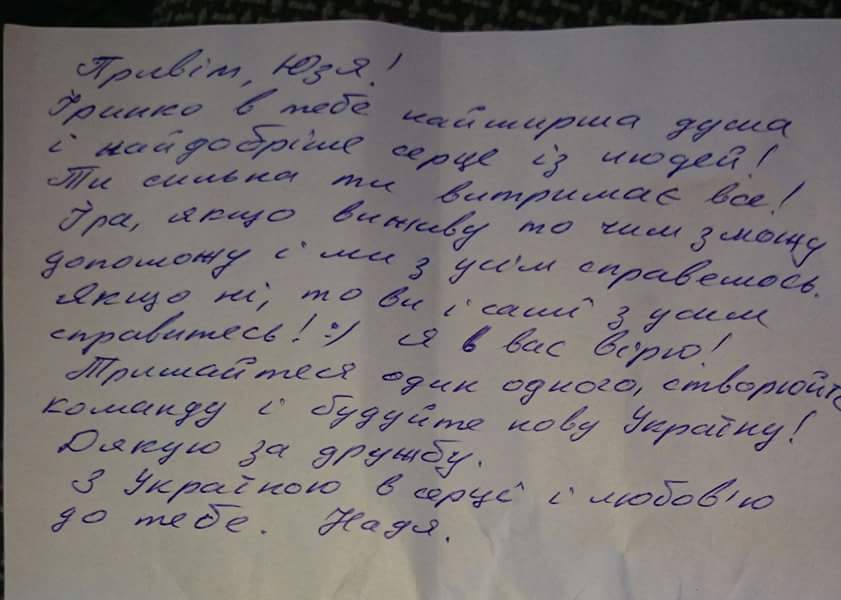 Привіт, Юзя!
Іринко в тебе найщирша душа
і найдобріше серце із людей!
Ти сильна ти витримаєш все!
Іра, якщо виживу то чим зможу
допоможу і ми з усім справемось.
Якщо ні, то ви і самі з усим
справитесь! :) Я в вас вірю!
Тримайтеся один одного, створюйте
команду і будуйте нову Україну!
Дякую за дружбу.
З Україною в серці і любов'ю
до тебе. Надя.